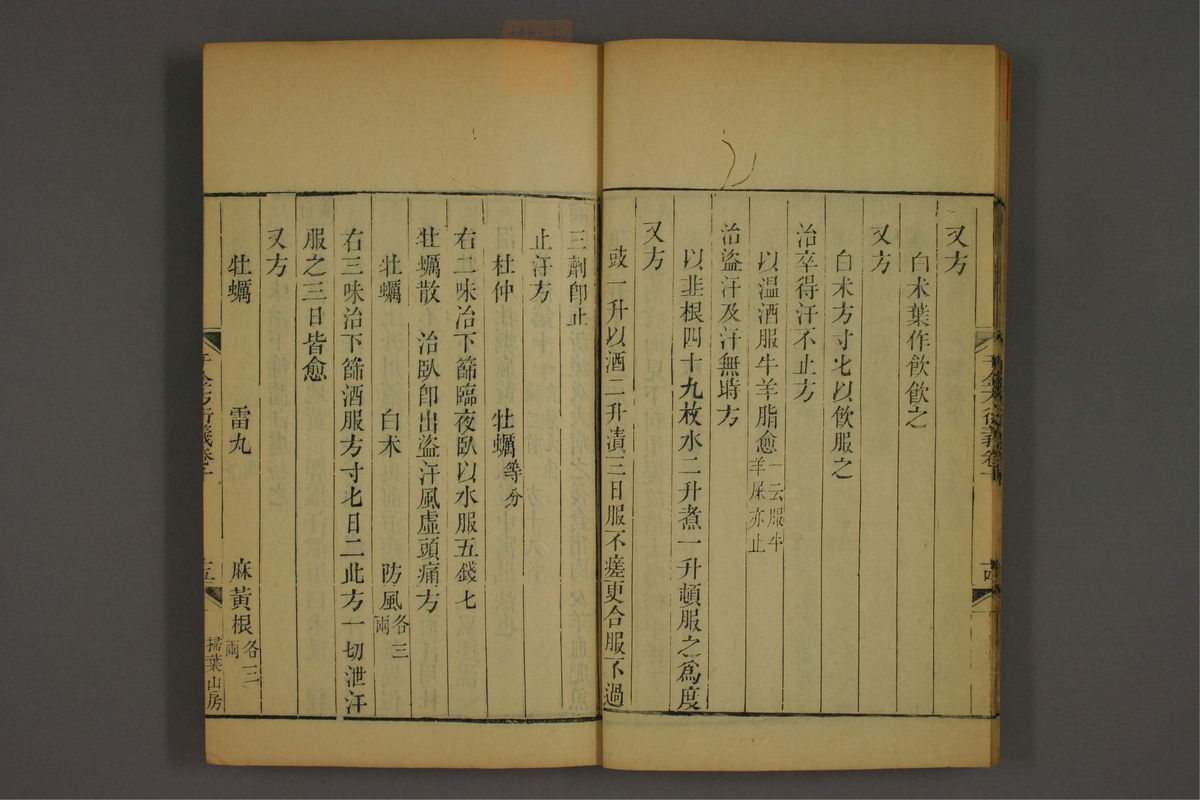 又方
白术葉作飲飲之
又方
白术方寸匕以飲服之
治卒得汗不止方
以温酒服牛羊脂愈一云服牛羊屎亦止
治盜汗及汗無時方
以韭根四十九枚水二升煮一升頓服之爲度
又方
豉一升以酒二升漬三日服不瘥更合服不過
三劑卽止
止汗方
杜仲 牡蠣等分
右二味冶下篩臨夜臥以水服五錢匕
牡蠣散 治臥卽出盜汗風虛頭痛方
牡蠣 白术 防風各三兩
右三味治下篩酒服方寸匕日二此方一切泄汗
服之三日皆愈
又方
牡蠣 雷丸 麻黃根各三兩
千金方衍義卷十
掃葉山房